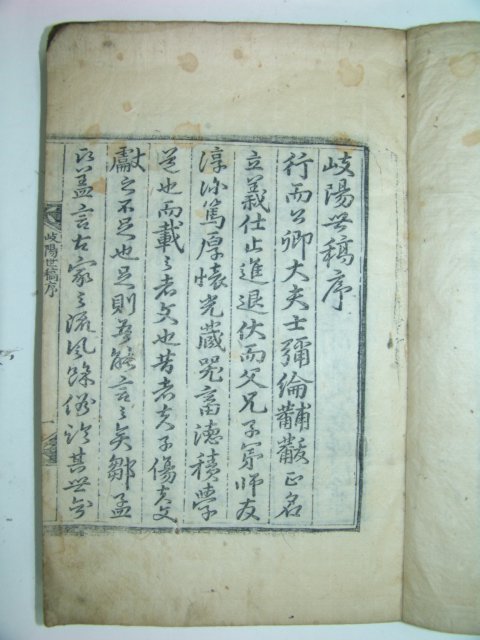 岐陽世稿序
行而公卿大夫士彌綸黼黻正名
立義仕止進退伏而父兄子弟師友
淳深篤厚懷光藏器畜德積學
是也而載之者文也昔者夫子傷夫文
獻之不足也足則吾能言之矣鄒孟
氏盖言古家之流風餘俗論其世知
岐陽世稿序
一